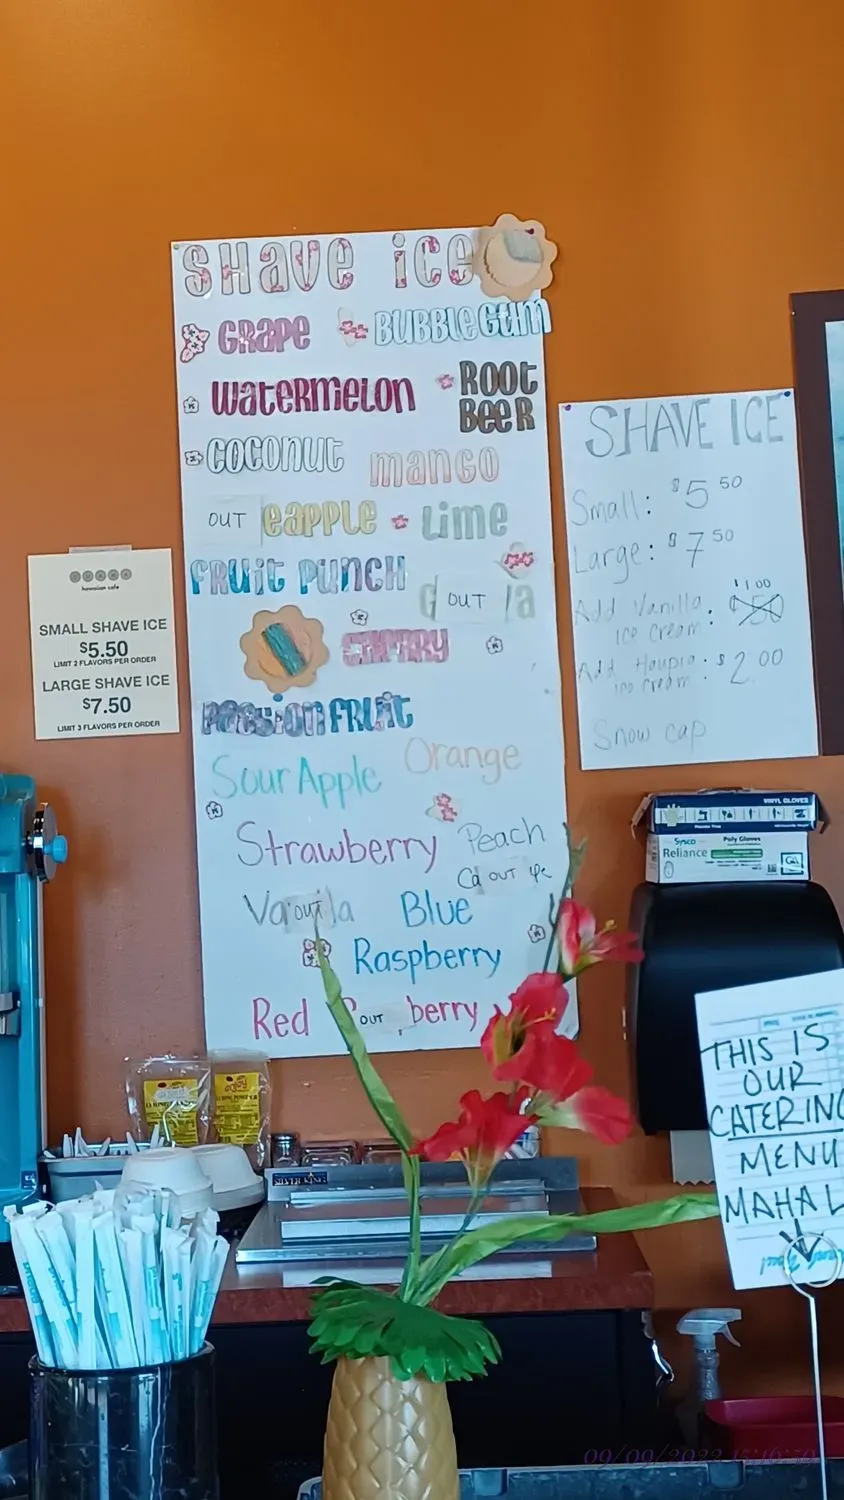 SHave ice
GRAPE
BUBBLE GUM
WateRMeLON
ROOt
BeeR
COCONUt
maNGO
OUT eapple
Lime
FRUit PUNCH
OUT
CHERRY
PassionFRUit
Sour Apple
Orange
Strawberry
Peach
OUT
OUT
Blue
Raspberry
Red
OUT berry
hawaiian cafe
SMALL SHAVE ICE
$5.50
LIMIT 2 FLAVORS PER ORDER
LARGE SHAVE ICE
$7.50
LIMIT 3 FLAVORS PER ORDER
SHAVE ICE
Small: $5 50
Large: $7 50
Add Vanilla
ice cream:
$1.00
Add Haupia
ice cream: $2.00
Snow cap
VINYL GLOVES
Sysco
Reliance
Poly Gloves
enjoy
SILVER KING
THIS IS
OUR
CATERING
MENU
MAHAL
09/09/2022 15:16:50